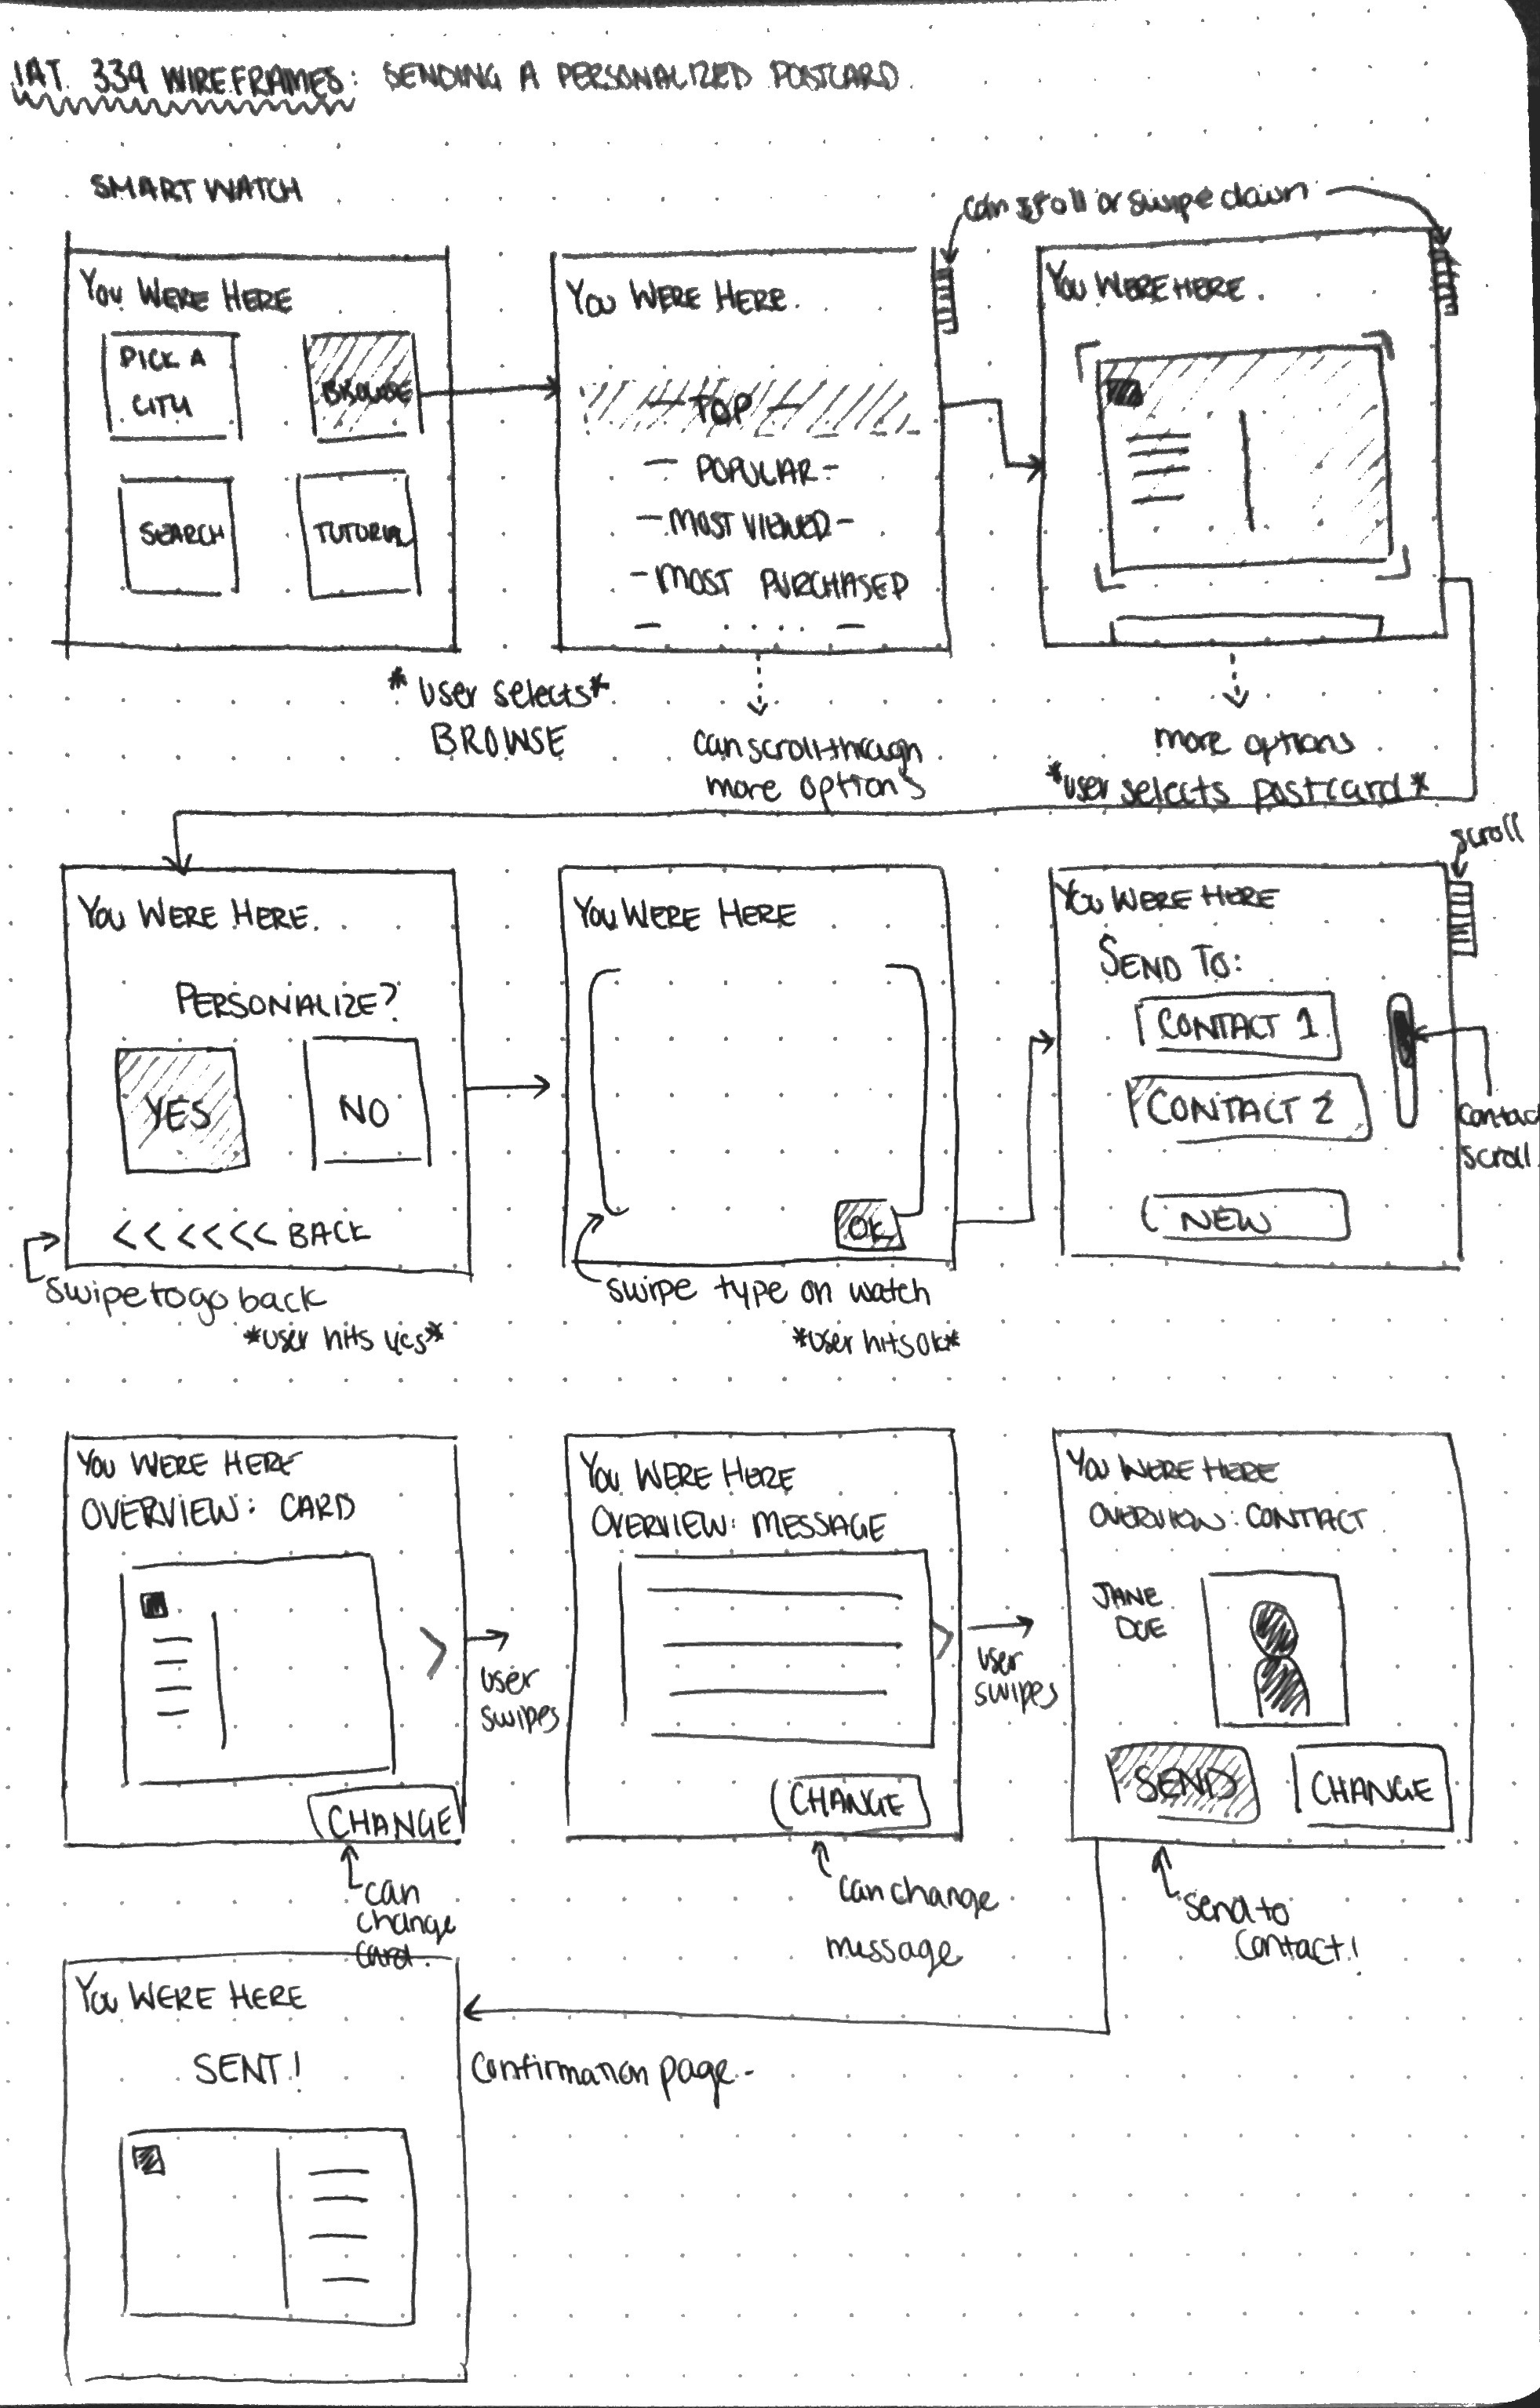 IAT 339 WIREFRAMES: SENDING A PERSONALIZED POSTCARD
SMART WATCH
can scroll or swipe down
YOU WERE HERE
PICK A
CITY
BROWSE
SEARCH
TUTORIAL
*user selects*
BROWSE
YOU WERE HERE.
- TOP -
- POPULAR -
- MOST VIEWED -
- MOST PURCHASED
- .... -
can scroll through
more options
YOU WERE HERE.
more options
*user selects postcard*
YOU WERE HERE.
PERSONALIZE?
YES
NO
<<<<<< BACK
swipe to go back
*user hits yes*
YOU WERE HERE
OK
swipe type on watch
*user hits OK*
scroll
YOU WERE HERE
SEND TO:
CONTACT 1
CONTACT 2
NEW
contac
scroll
YOU WERE HERE
OVERVIEW: CARD
>
CHANGE
can
change
card.
user
swipes
YOU WERE HERE
OVERVIEW: MESSAGE
>
CHANGE
can change
message
user
swipes
YOU WERE HERE
OVERVIEW: CONTACT
JANE
DOE
SEND
CHANGE
send to
contact!
YOU WERE HERE
SENT!
confirmation page -